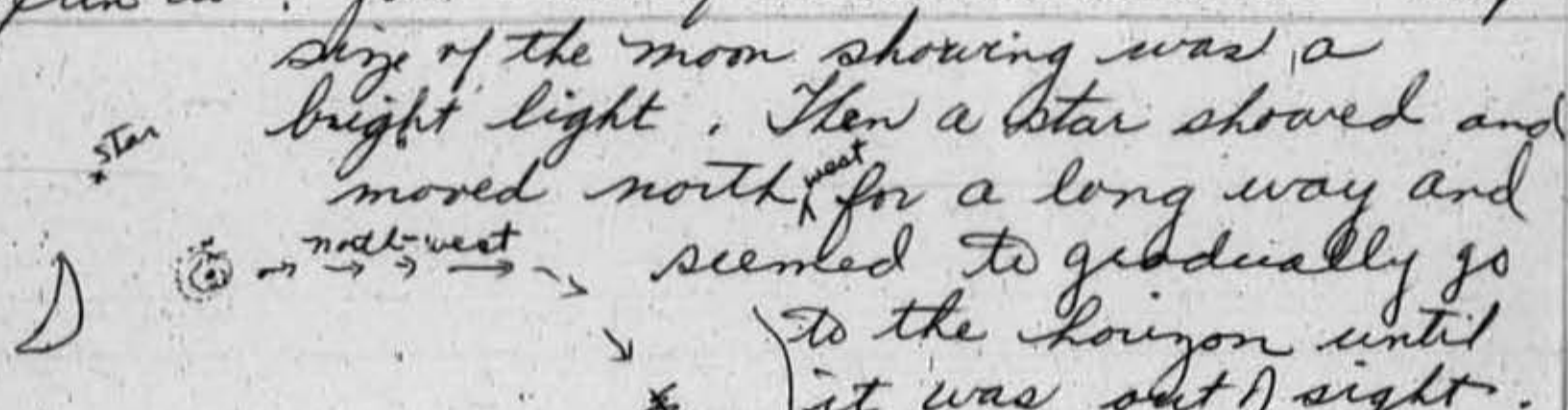 size of the moon showing was a
bright light. Then a star showed and
star
moved north west for a long way and
north-west
seemed to gradually go
to the horizon until
it was out of sight.